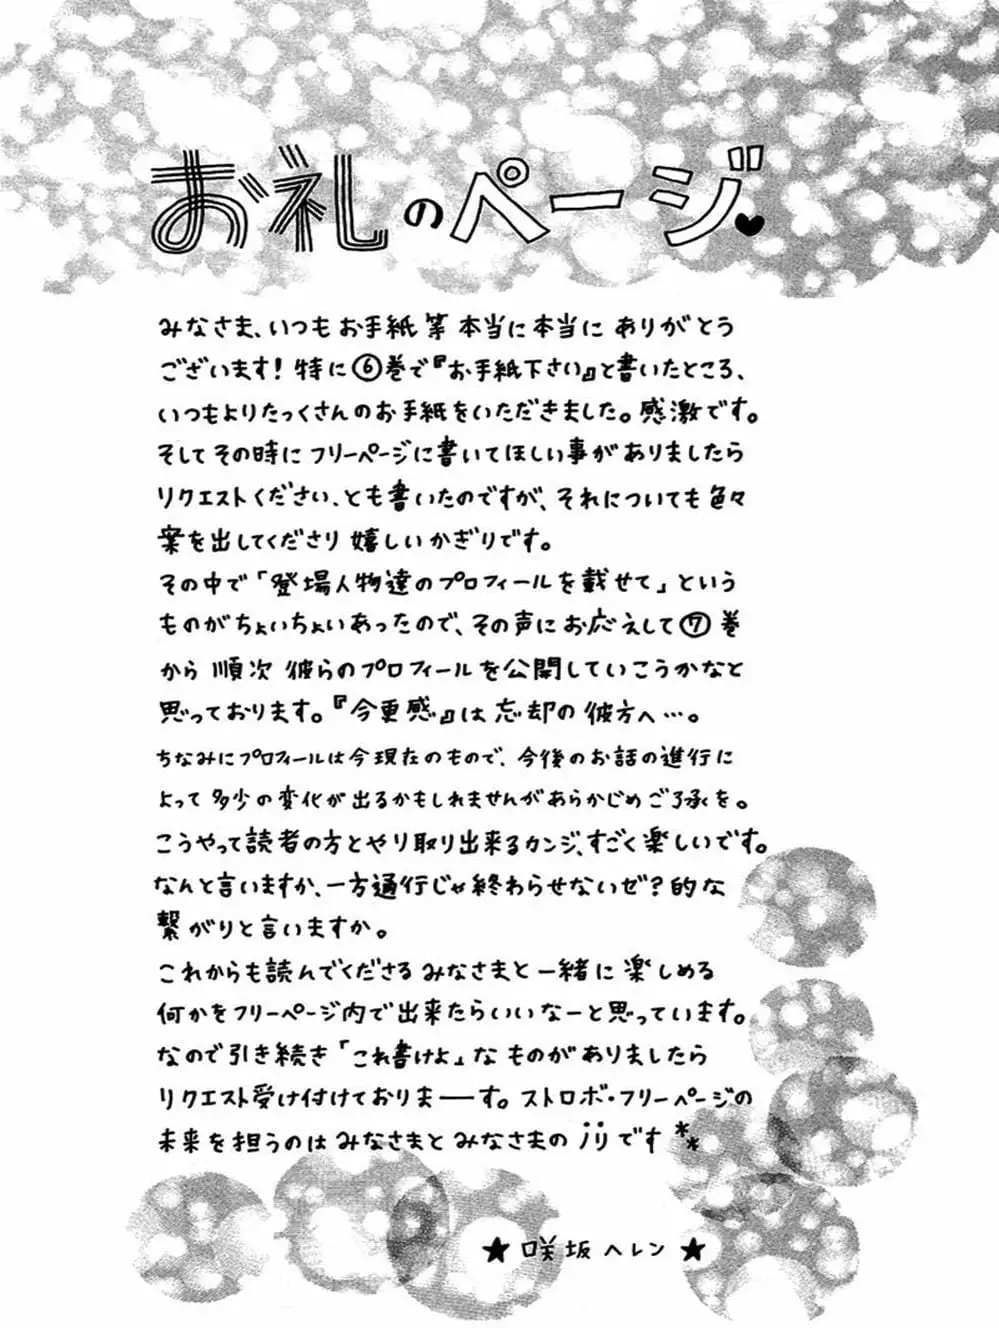 お礼のページ♥
みなさま、いつもお手紙等本当に本当にありがとう
ございます!特に⑥巻で『お手紙下さい』と書いたところ、
いつもよりたっくさんのお手紙をいただきました。感激です。
そしてその時にフリーページに書いてほしい事がありましたら
リクエストください、とも書いたのですが、それについても色々
案を出してくださり嬉しいかぎりです。
その中で「登場人物達のプロフィールを載せて」という
ものがちょいちょいあったので、その声にお応えして⑦巻
から順次彼らのプロフィールを公開していこうかなと
思っております。『今更感』は忘却の彼方へ…。
ちなみにプロフィールは今現在のもので、今後のお話の進行に
よって多少の変化が出るかもしれませんがあらかじめご了承を。
こうやって読者の方とやり取り出来るカンジ、すごく楽しいです。
なんと言いますか、一方通行じゃ終わらせないゼ?的な
繋がりと言いますか。
これからも読んでくださるみなさまと一緒に楽しめる
何かをフリーページ内で出来たらいいなーと思っています。
なので引き続き「これ書けよ」なものがありましたら
リクエスト受け付けておりまーす。ストロボ・フリーページの
未来を担うのはみなさまとみなさまのjijiです**
★咲坂ヘレン★